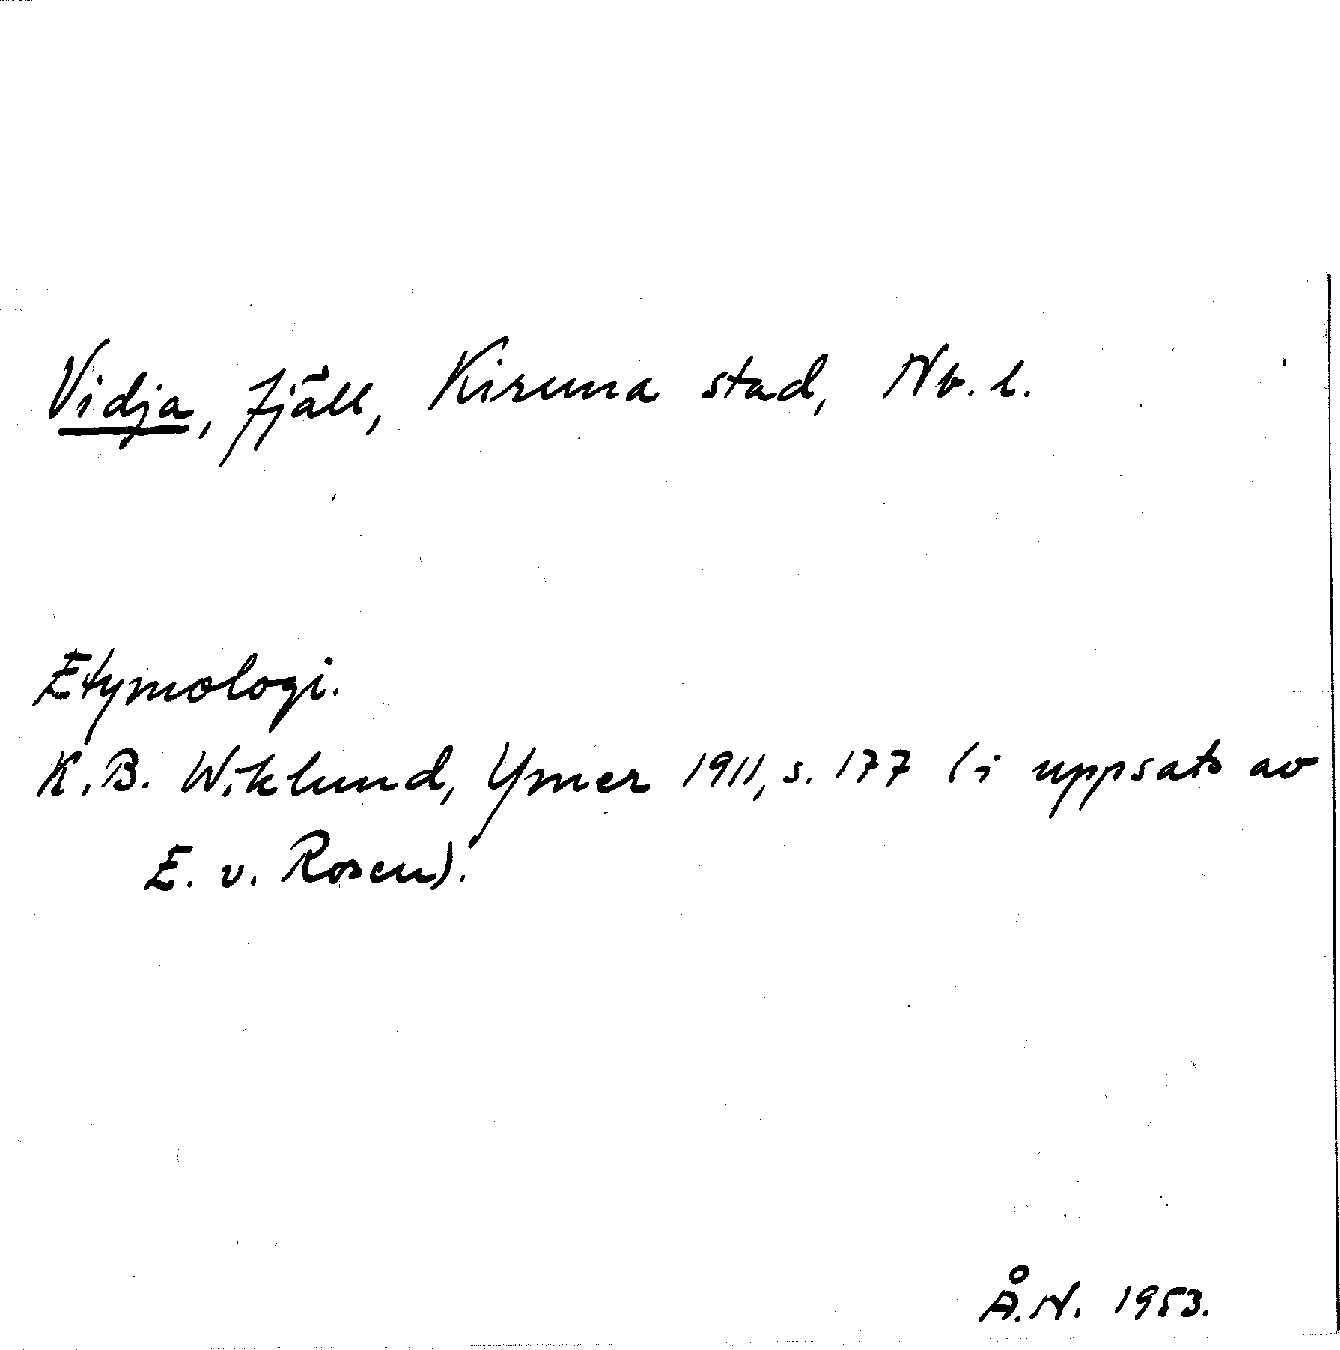 Vidja, fjäll, Kiruna stad, Nb. l.
Etymologi.
K.B. Wiklund, Ymer 1911, s. 177 (i uppsats av
E. v. Rosen).
Å.N. 1953.